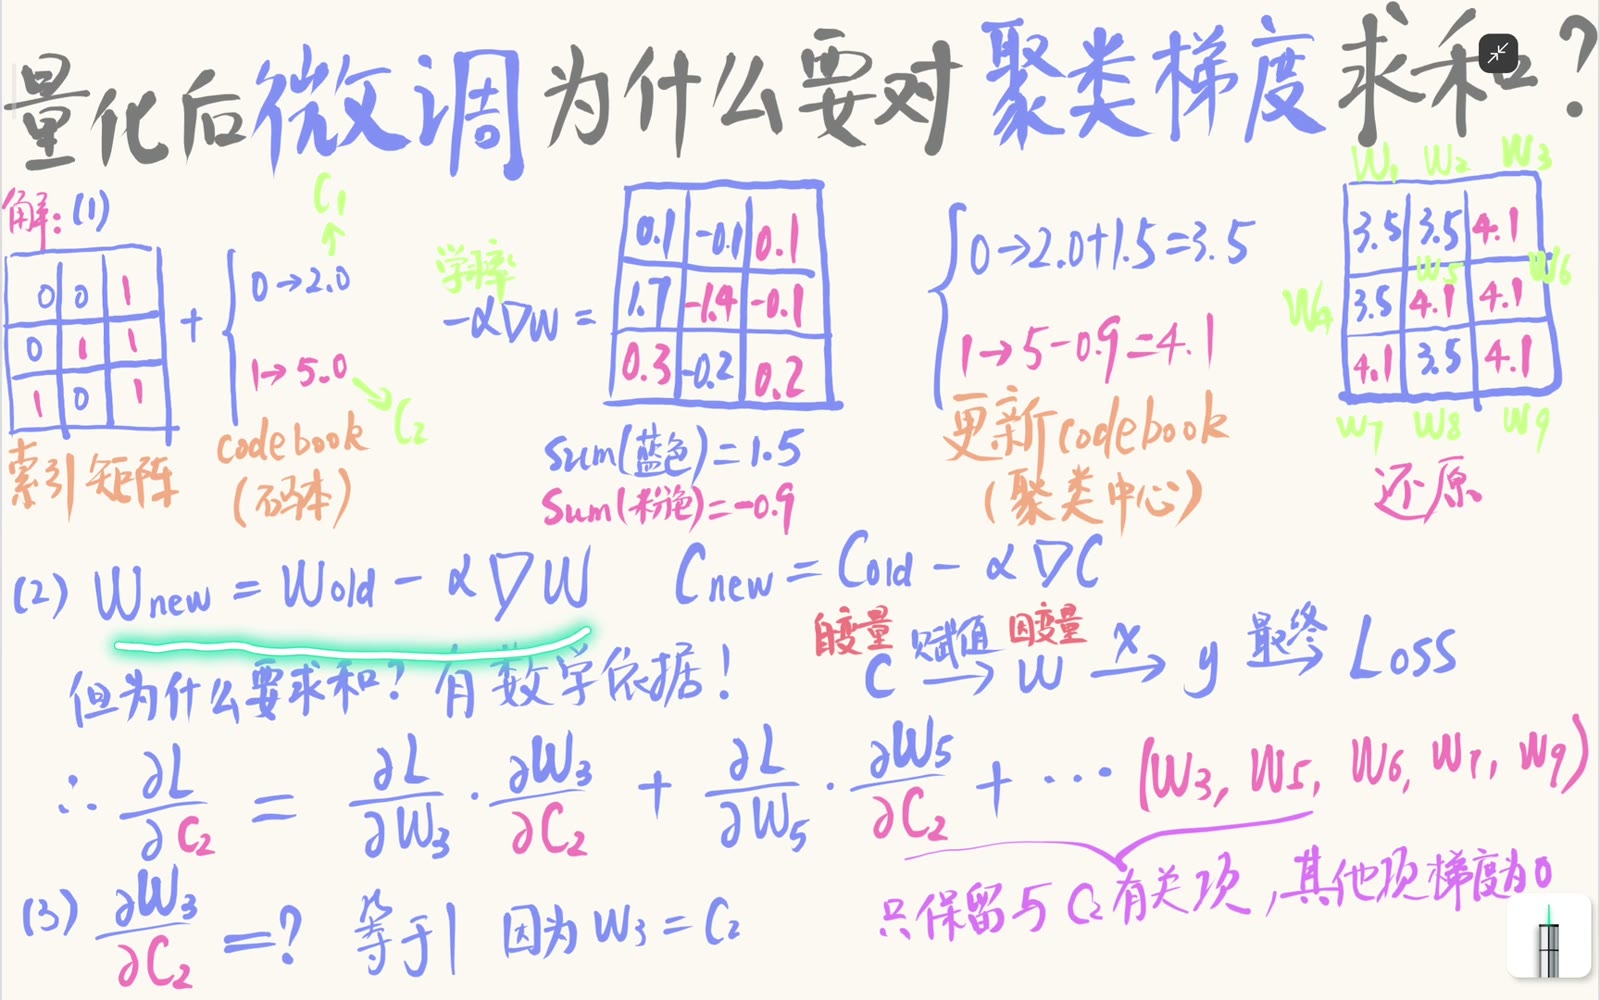 量化后微调为什么要对聚类梯度求和?
解:(1)
0 0 1
0 1 1
1 0 1
索引矩阵
+
C1
↑
0→2.0
1→5.0
C2
codebook
(码本)
学习率
-α∇W =
0.1 -0.1 0.1
1.7 -1.4 -0.1
0.3 -0.2 0.2
Sum(蓝色)=1.5
Sum(粉色)=-0.9
0→2.0+1.5=3.5
1→5-0.9=4.1
更新codebook
(聚类中心)
W1 W2 W3
3.5 3.5 4.1
W4 W5 W6
3.5 4.1 4.1
4.1 3.5 4.1
W7 W8 W9
还原
(2) Wnew = Wold - α∇W Cnew = Cold - α∇C
但为什么要求和?有数学依据!
自变量 赋值 因变量 X 最终
C → W → y → Loss
∴ ∂L/∂C2 = ∂L/∂W3 · ∂W3/∂C2 + ∂L/∂W5 · ∂W5/∂C2 + ··· (W3, W5, W6, W7, W9)
只保留与C2有关项,其他项梯度为0
(3) ∂W3/∂C2 =? 等于1 因为 W3 = C2